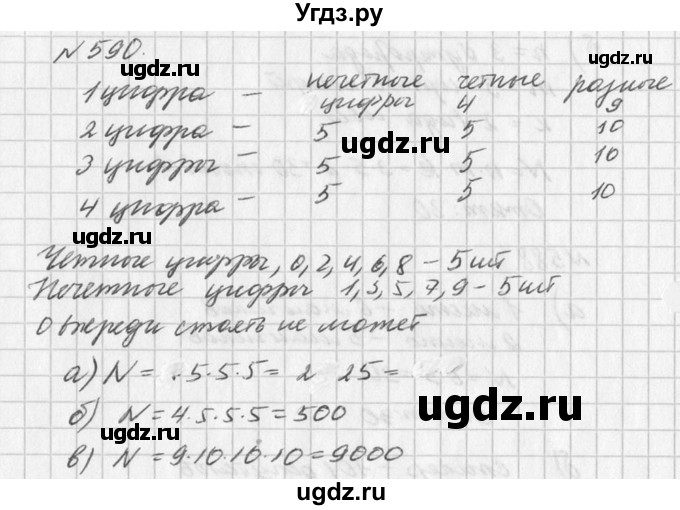 Угдз.ру
N 590.
ugdz.ru
нечетные четные разные
1 цифра – цифры 4 9
2 цифра – 5 5 10
ugdz.ru
3 цифры – 5 5 10
4 цифра – 5 5 10
ugdz.ru
Четные цифры, 0, 2, 4, 6, 8 – 5 шт
Нечетные цифры 1, 3, 5, 7, 9 – 5 шт
ugdz.ru
0 впереди стоять не может
а) N = .5.5.5 = 2 25 =
ugdz.ru
б) N = 4.5.5.5 = 500
ugdz.ru
в) N = 9.10.10.10 = 9000
ugdz.ru
ugdz.ru